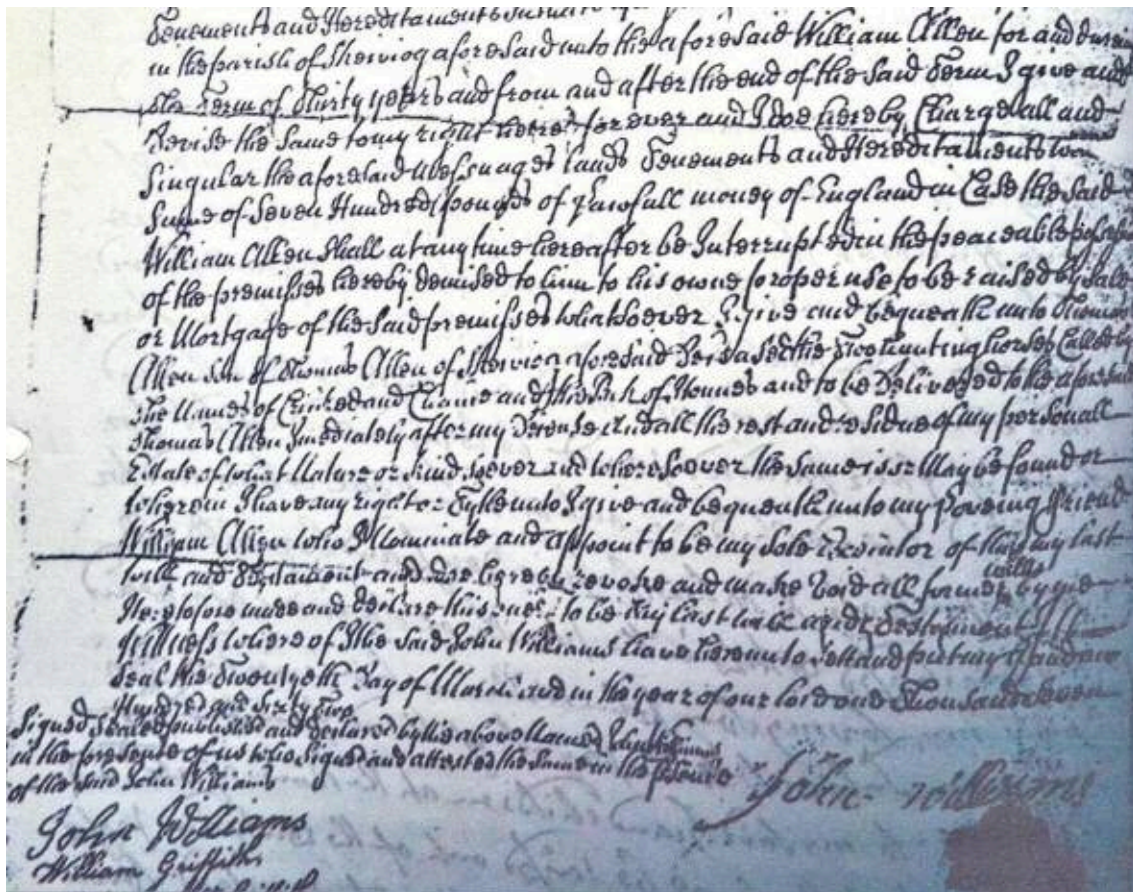 Tenements and Hereditaments
in the parish of Skeiviog aforesaid unto the aforesaid William Allen for and
the Term of Thirty years and from and after the end of the said Term I give and
Devise the same to my right heires for ever and I doe hereby Charge all and
Singular the aforesaid Messuages Lands Tenements and Hereditaments
Sume of Seven Hundred pounds of Lawfull money of England in Case the said
William Allen Shall at any time hereafter be Interrupted in the peaceable
of the premisses hereby demised to him to his owne proper use to be raised by Sale
or Mortgage of the said premisses whatsoever I give and bequeath unto Thomas
Allen son of Thomas Allen of Skeiviog aforesaid the Two Hunting horses Called by
the Names of and and the and to be Delivered to the aforesaid
Thomas Allen Imediately after my Decease And all the rest and residue of my personall
Estate of what Nature or kind soever and wheresoever the same is or May be found or
wherein I have any right or Tytle unto I give and bequeath unto my Loveing friend
William Allen who I Nominate and appoint to be my Sole Executor of this my last
will and Testament and doe hereby revoke and make Void all former wills by me
Heretofore made and declare this to be my last will and Testament In
Witness whereof I the said John Williams have hereunto Sett and put my Hand and
Seal the Twentyeth Day of March and in the year of our Lord one Thousand seven
Hundred and Sixty Two
Signed Sealed published and declared by the above Named John Williams
in the presence of us who Signed and attested the same in the presence
of the said John Williams
John Williams
John Williams
William Griffith